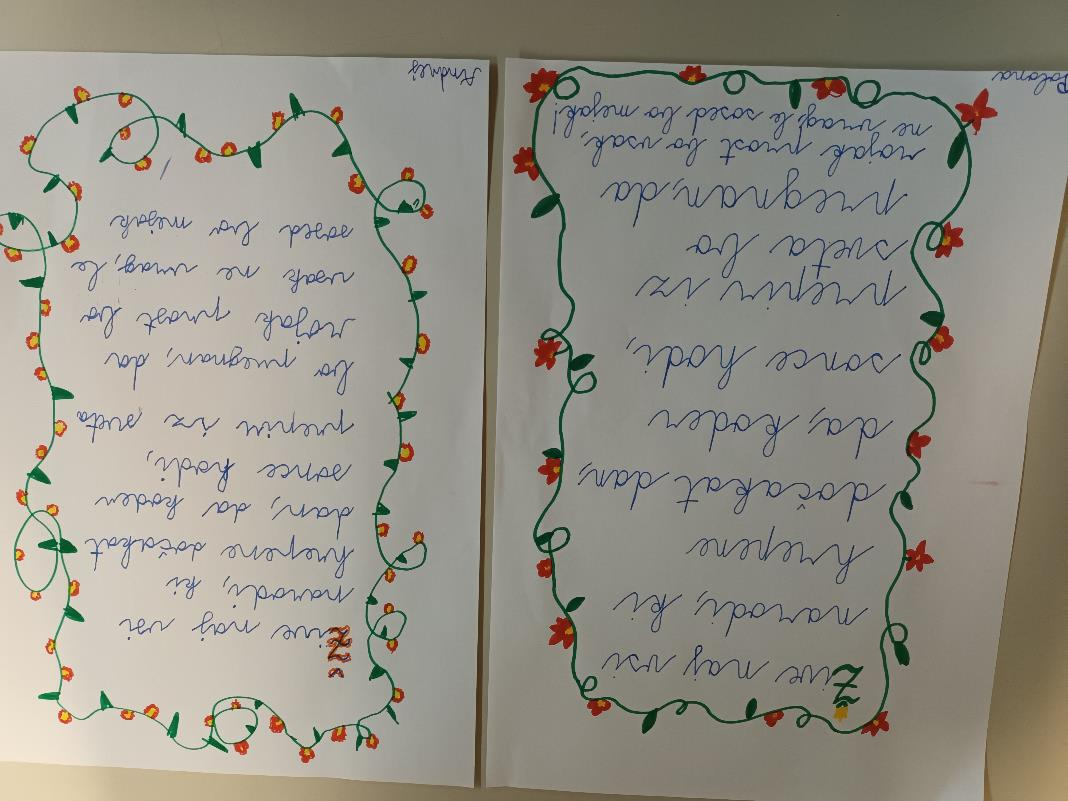 Žive naj vsi
narodi, ki
hrepene
dočakat dan,
da, koder
sonce hodi,
prepir iz
sveta bo
pregnan, da
rojak prost bo vsak,
ne vrag, le sosed bo mejak!
Polona
Žive naj vsi
narodi, ki
hrepene dočakat
dan, da koder
sonce hodi,
prepir iz sveta
bo pregnan, da
rojak prost bo
vsak ne vrag, le
sosed bo mejak
Andrej